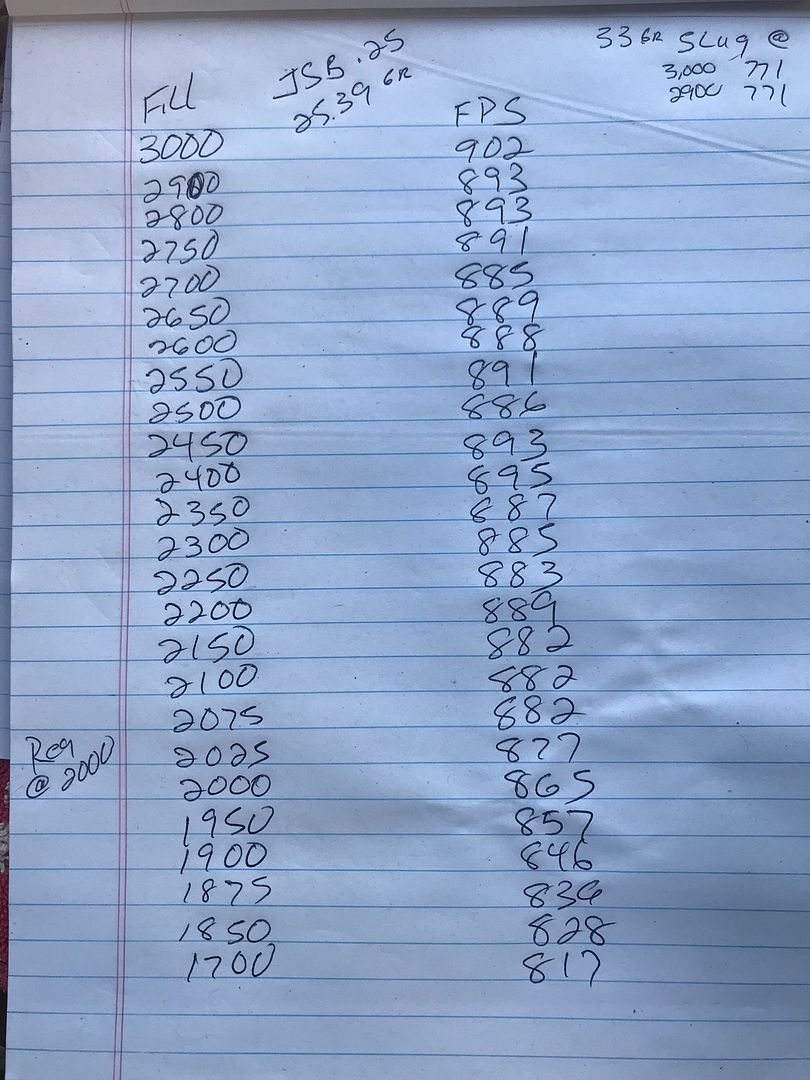 33 GR SLug @
3,000 771
2900 771
JSB .25
25.39 GR
Fill FPS
3000 902
2900 893
2800 893
2750 891
2700 885
2650 889
2600 888
2550 891
2500 886
2450 893
2400 895
2350 887
2300 885
2250 883
2200 889
2150 882
2100 882
2075 882
Reg
@ 2000
2025 877
2000 865
1950 857
1900 846
1875
1850 828
1700 817